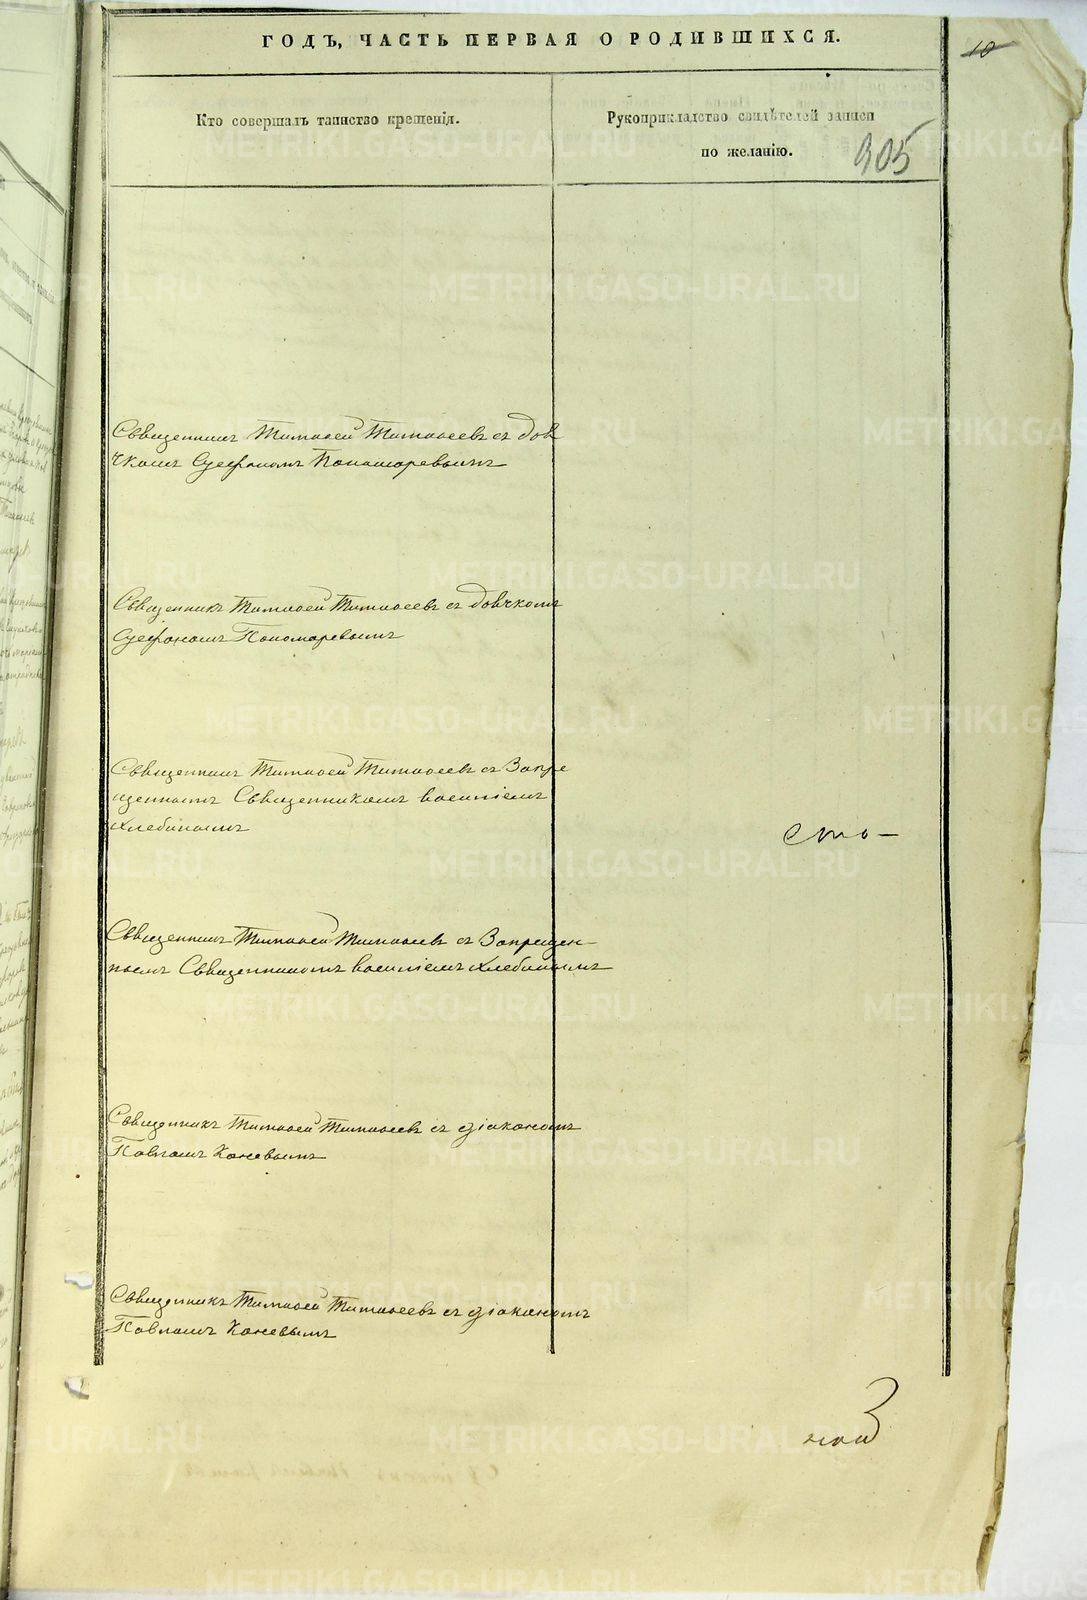 ГОДЪ, ЧАСТЬ ПЕРВАЯ О РОДИВШИХСЯ.
10
Кто совершалъ таинство крещенія.
Рукоприкладство свидѣтелей записи
по желанію.
905
Священникъ Тимофей Тимофеевъ съ дья
чкомъ Стефаномъ Пономаревымъ
Священникъ Тимофей Тимофеевъ съ дьячкомъ
Стефаномъ Пономаревымъ
Священникъ Тимофей Тимофеевъ съ Запре
щеннымъ Священникомъ Василіемъ
Хлебинымъ
сто
Священникъ Тимофей Тимофеевъ съ Запрещен
нымъ Священникомъ Василіемъ Хлебинымъ
Священникъ Тимофей Тимофеевъ съ діакономъ
Павломъ Каневымъ
Священникъ Тимофей Тимофеевъ съ діакономъ
Павломъ Каневымъ
METRIKI.GASO-URAL.RU